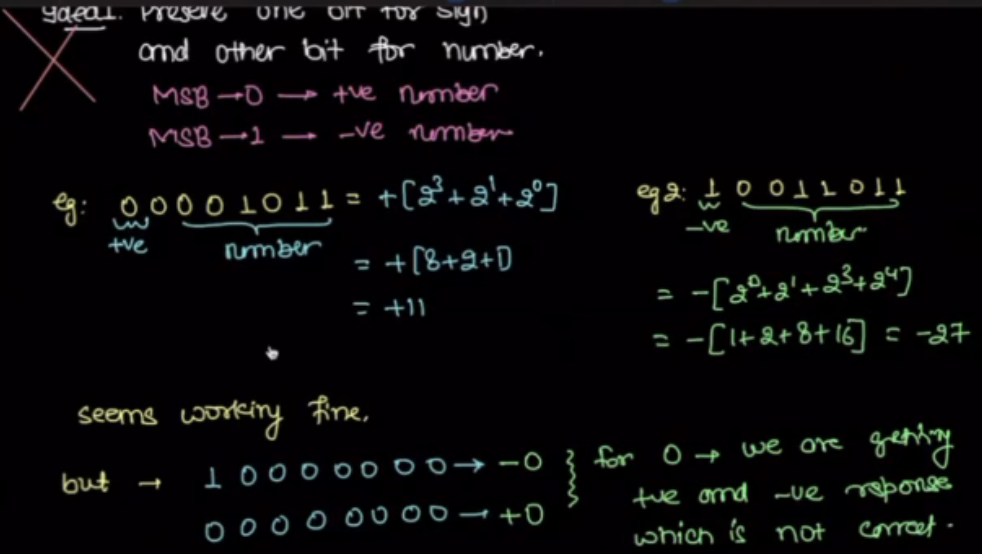 Idea1. Preserve one bit for sign
and other bit for number.
MSB → 0 → +ve number
MSB → 1 → -ve number
eg: 0 0 0 0 1 0 1 1 = +[2³ + 2¹ + 2⁰]
+ve number
= +[8+2+1]
= +11
eg 2: 1 0 0 1 1 0 1 1
-ve number
= -[2⁰+2¹+2³+2⁴]
= -[1+2+8+16] = -27
seems working fine.
but → 1 0 0 0 0 0 0 0 → -0
0 0 0 0 0 0 0 0 → +0
for 0 → we are getting
+ve and -ve response
which is not correct.